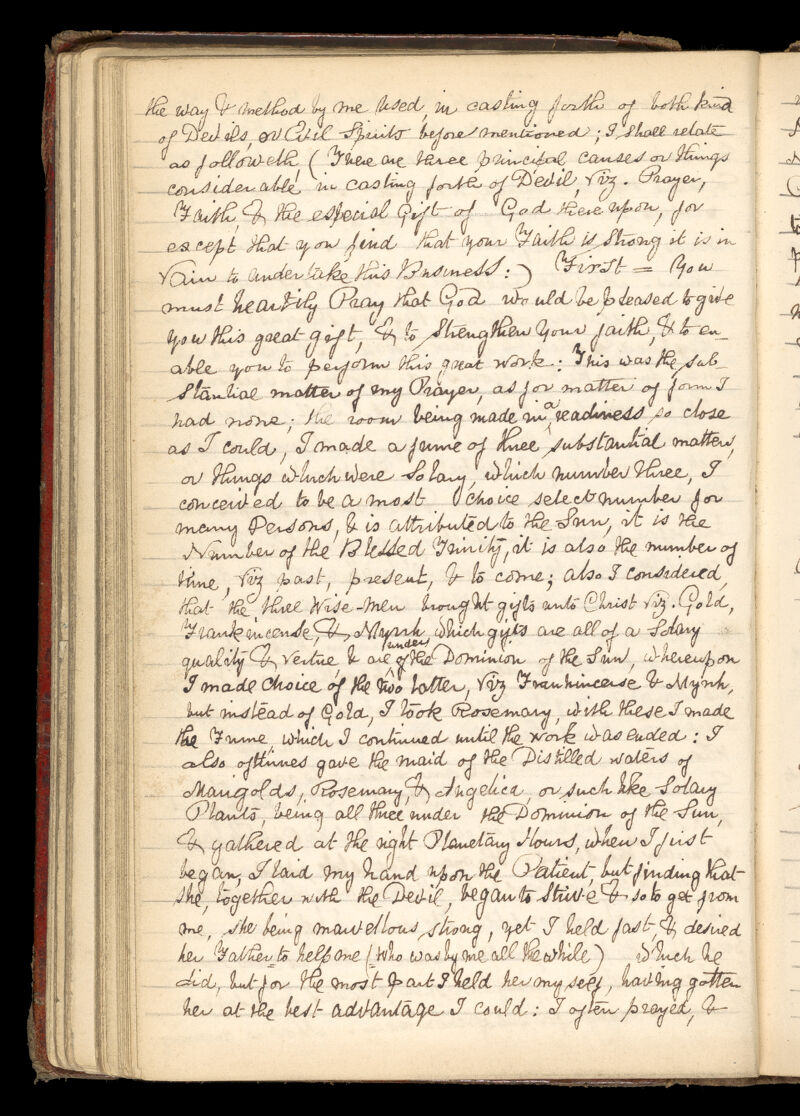 the way & method by me used, in casting forth of both kind
of Devils, or Evil Spirits before mentioned; I shall relate
as followeth, (There are three principal causes or things
considerable, in casting forth of Devil, Viz. Prayer,
Faith, & the especial Gift of God there upon, for
except that you find that your Faith is strong it is in
Vain to undertake this Business:) First = You
must heartily Pray that God would be pleased to give
you this great gift, & to strengthen your faith, & to en-
able you to perform this great work: This was the sub-
stantial matter of my Prayer, as for matter of form I
had none; the room being made in a readiness so close
as I could, I made a fume of three substantial matters,
or things which were Solary, which number three, I
conceived to be a most choice select number for
many Persons, & is attributed to the Sun, it is the
Number of the Blessed Trinity, it is also the number of
time, Viz past, present, & to come; also I considered,
that the three Wise-men brought gifts unto Christ Viz. Gold,
Frankincense, & Myrrh, which gifts are all of a Solary
quality & Vertue & are under of the Dominion of the Sun, whereupon
I made Choice of the two latter, Viz Frankincense & Myrrh,
but instead of Gold, I took Rosemary, with these I made
the Fume, which I continued until the work was ended: I
also oftimes gave the maid of the Distilled waters of
Marigolds, Rosemary, & Angelica, or such like Solary
Plants, being all three under the Dominion of the Sun,
& gathered at the right Planetary Hours, when I first
began, I laid my hand upon the Patient, but finding that
she, together with the Devil, began to strive & so to get from
me, she being marvellous strong, yet I held fast, & desired
her Father to help me (Who was by me all the while) which he
did, but for the most part I held her my self, having gotten
her at the best advantage I could: I often prayed, &